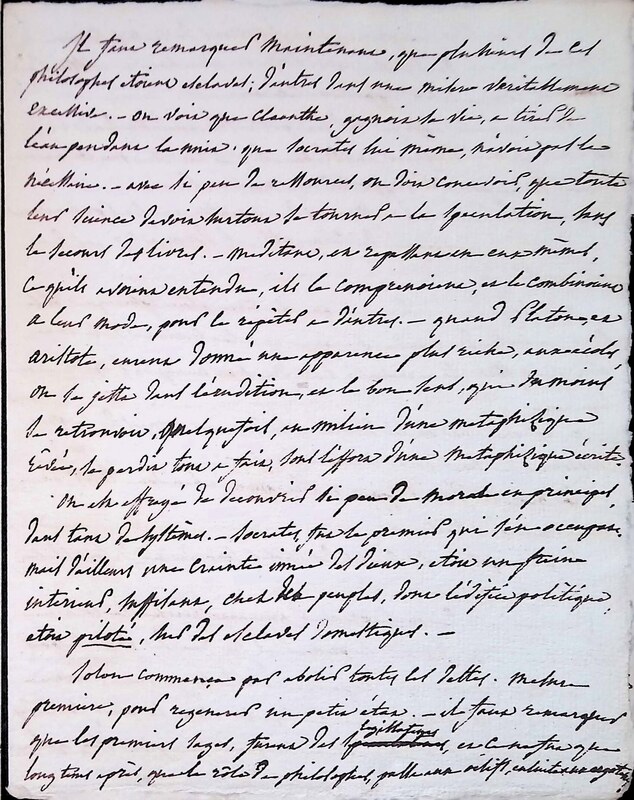 Il faut remarquer maintenant, que plusieurs de ces
philosophes etoient esclaves; d'autres dans une misere veritablement
excessive. - on voit que cleanthe, gagnoit sa vie, a tirer de
l'eau pendant la nuit. que Socrates lui même, n'avoit pas le
nécessaire. - avec si peu de ressources, on doit concevoir, que toute
leur science devoit surtout se tourner a la speculation, sans
le secours des livres. - meditant, et repassant en eux mêmes,
ce qu'ils avoient entendu, ils le comprenoient, et le combinoient
a leur mode, pour le répéter a d'autres. - quand Platon, et
aristote, eurent donné une apparence plus riche, aux écoles
on se jetta dans l'érudition, et le bon sens, qui du moins
se retrouvoit, quelquefois, au milieu d'une metaphizique
rêvée, se perdit tout a fait, sous l'essor d'une metaphizique écrite.
On est effrayé de decouvrir si peu de morale en principes
dans tant de systêmes. - Socrates, fut le premier qui s'en occupa.
mais d'ailleurs une crainte innée des dieux, etoit un frein
interieur, suffisant, chez des peuples, dont l'édifice politique,
etoit piloté, sur des esclaves domestiques. -
Solon commença par abolir toutes les dettes. mesure
premiere, pour regenerer un petit état. - il faut remarquer
que les premiers sages, furent des legislateurs, et ce ne fut que
longtems après, que le rôle de philosophes, passa aux oisifs, ensuite aux